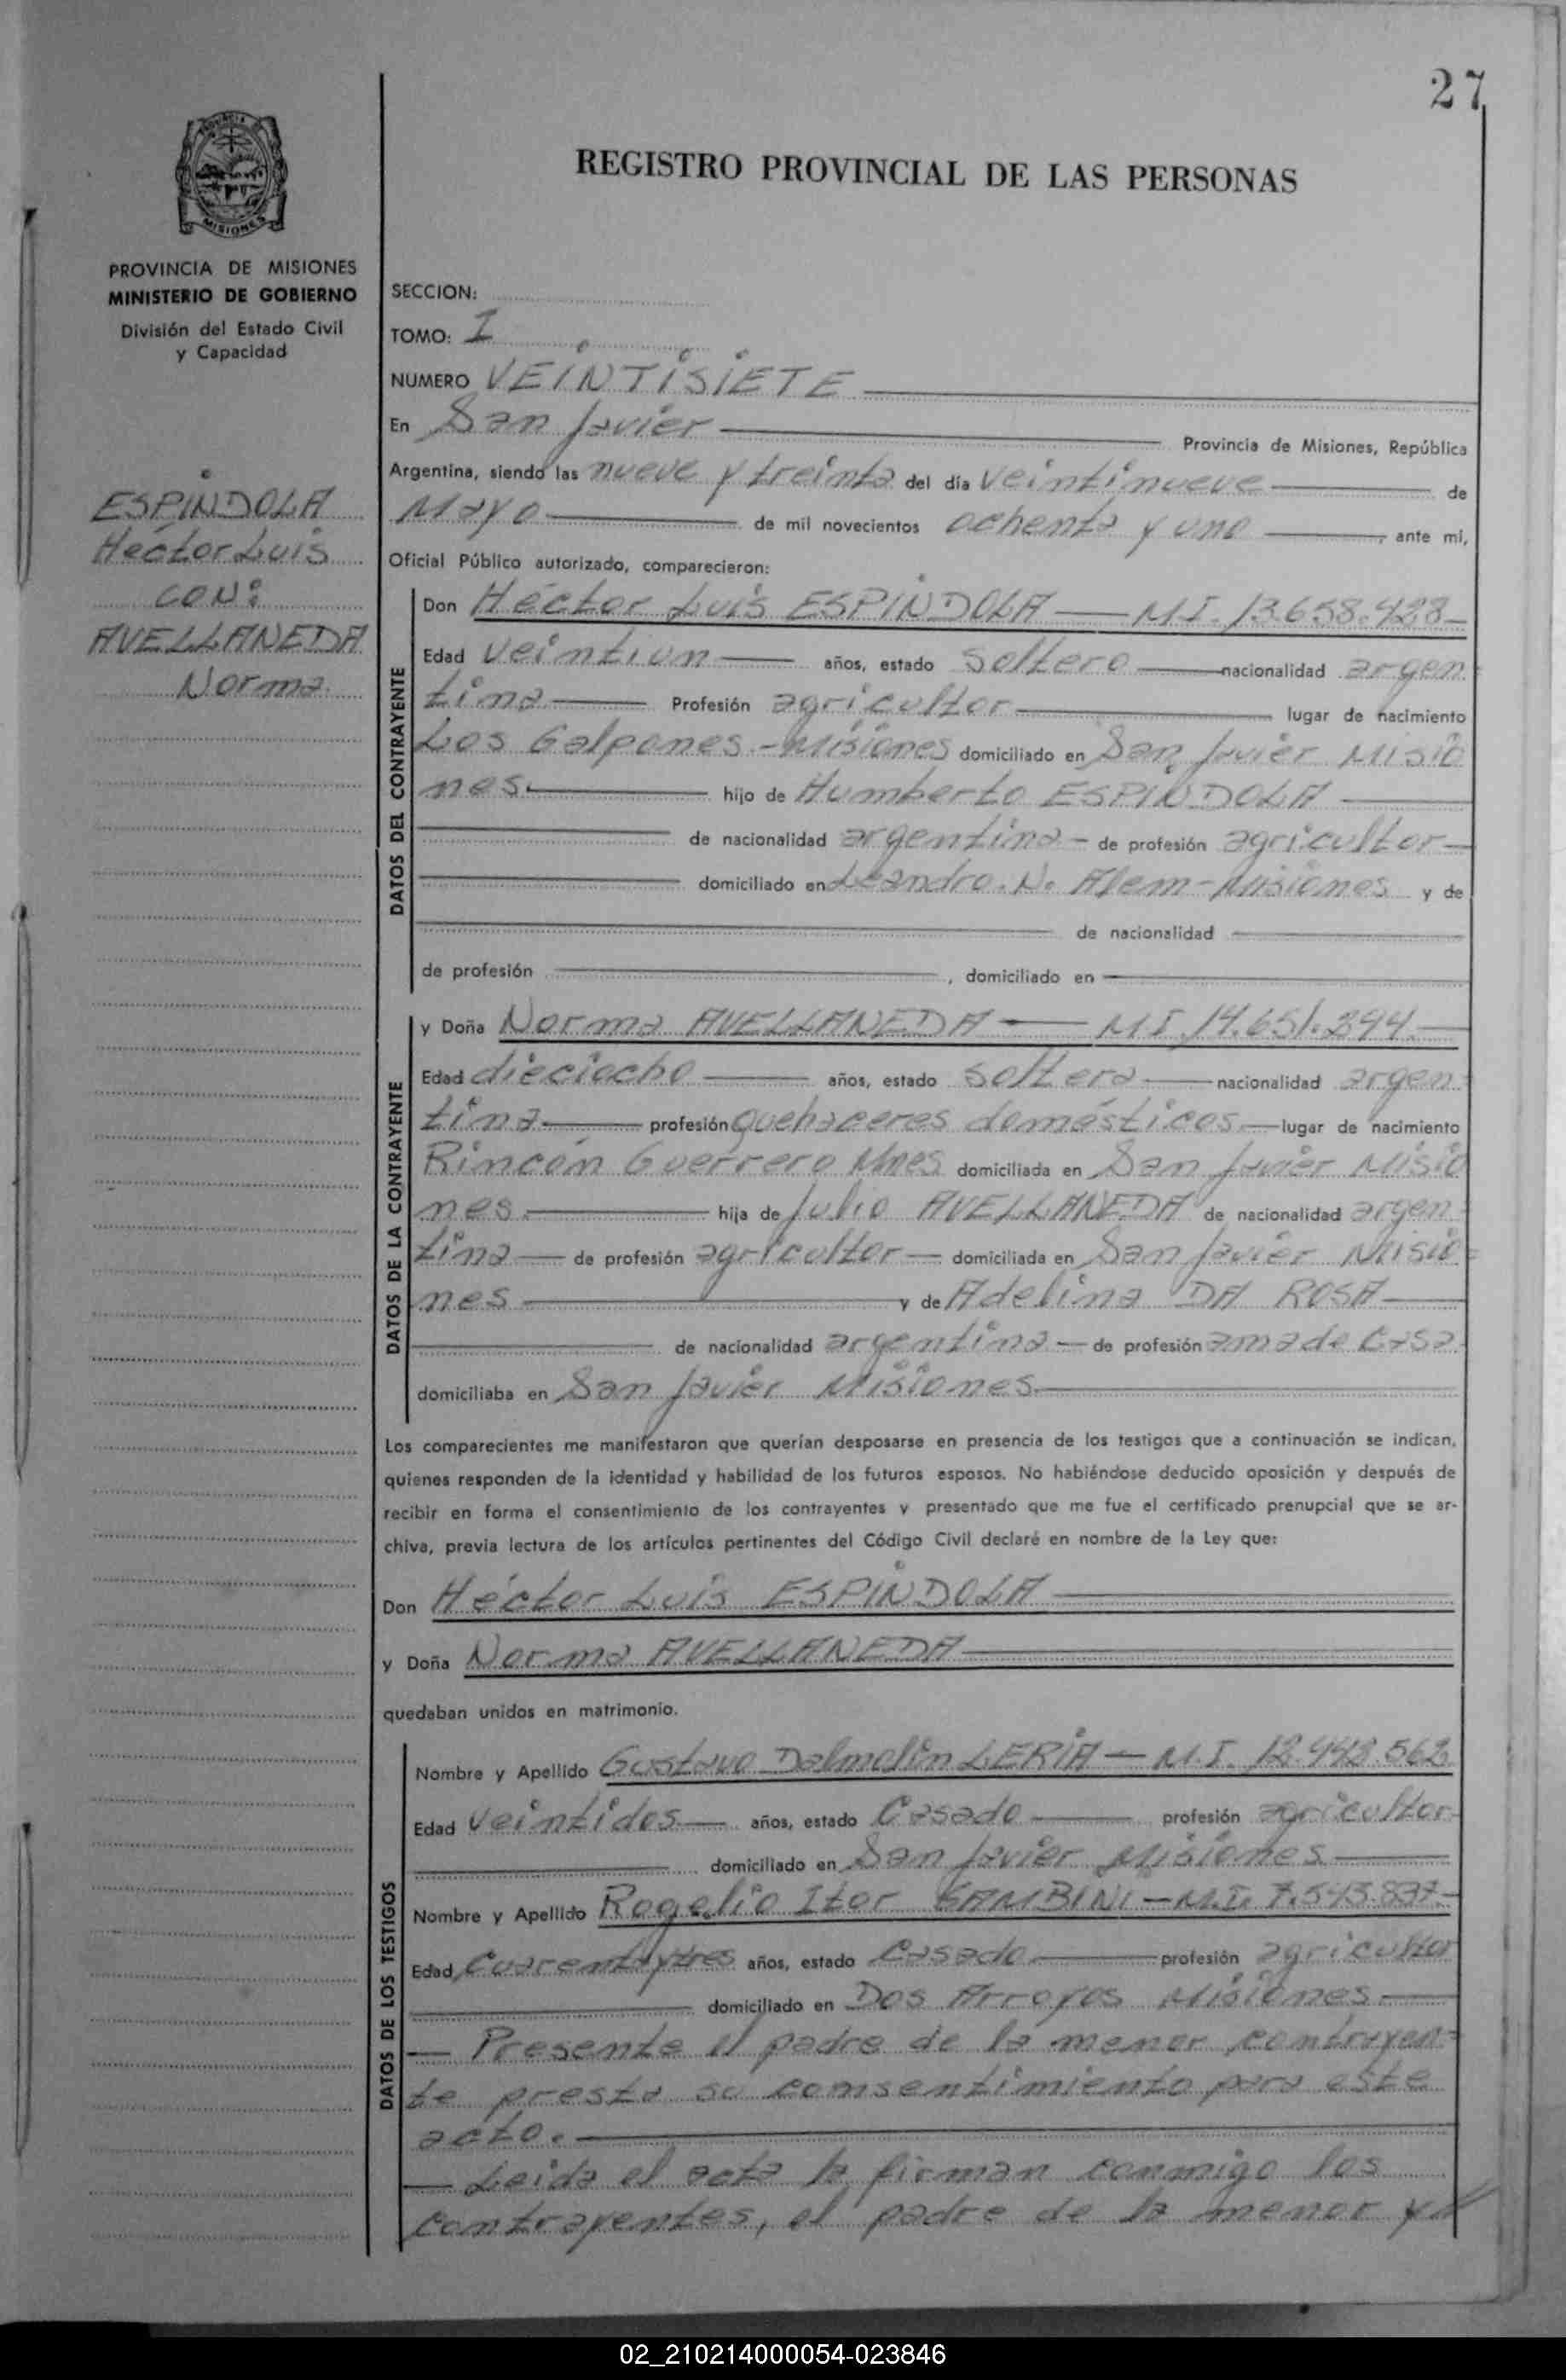 27
REGISTRO PROVINCIAL DE LAS PERSONAS
PROVINCIA
MISIONES
PROVINCIA DE MISIONES
MINISTERIO DE GOBIERNO
División del Estado Civil
y Capacidad
ESPINDOLA
Héctor Luis
CON:
AVELLANEDA
Norma
SECCION:
TOMO: I
NUMERO VEINTISIETE
En San Javier Provincia de Misiones, República
Argentina, siendo las nueve y treinta del día veintinueve de
Mayo de mil novecientos ochenta y uno, ante mí,
Oficial Público autorizado, comparecieron:
DATOS DEL CONTRAYENTE
Don Héctor Luis ESPINDOLA — M.I. 13.658.428
Edad veintiun años, estado soltero nacionalidad argen
tina Profesión agricultor lugar de nacimiento
Los Galpones - Misiones domiciliado en San Javier Misio
nes hijo de Humberto ESPINDOLA
de nacionalidad argentina de profesión agricultor
domiciliado en Leandro. N. Alem - Misiones y de
de nacionalidad
de profesión , domiciliado en
DATOS DE LA CONTRAYENTE
y Doña Norma AVELLANEDA — M.I. 14.651.294
Edad dieciocho años, estado soltera nacionalidad argen
tina profesión quehaceres domésticos lugar de nacimiento
Rincón Guerrero Mnes domiciliada en San Javier Misio
nes hija de Julio AVELLANEDA de nacionalidad argen
tina de profesión agricultor domiciliada en San Javier Misio
nes y de Adelina DA ROSA
de nacionalidad argentina de profesión ama de casa
domiciliaba en San Javier Misiones
Los comparecientes me manifestaron que querían desposarse en presencia de los testigos que a continuación se indican,
quienes responden de la identidad y habilidad de los futuros esposos. No habiéndose deducido oposición y después de
recibir en forma el consentimiento de los contrayentes y presentado que me fue el certificado prenupcial que se ar-
chiva, previa lectura de los artículos pertinentes del Código Civil declaré en nombre de la Ley que:
Don Héctor Luis ESPINDOLA
y Doña Norma AVELLANEDA
quedaban unidos en matrimonio.
DATOS DE LOS TESTIGOS
Nombre y Apellido Gustavo Dalmolin LERIA — M.I. 12.442.562
Edad veintidos años, estado Casado profesión agricultor
domiciliado en San Javier Misiones
Nombre y Apellido Rogelio Itor GAMBINI — M.I. 7.543.837
Edad Cuarentaytres años, estado Casado profesión agricultor
domiciliado en Dos Arroyos Misiones
— Presente el padre de la menor contrayen-
te presta su consentimiento para este
acto.
— Leida el acta la firman conmigo los
contrayentes, el padre de la menor y
02_210214000054-023846